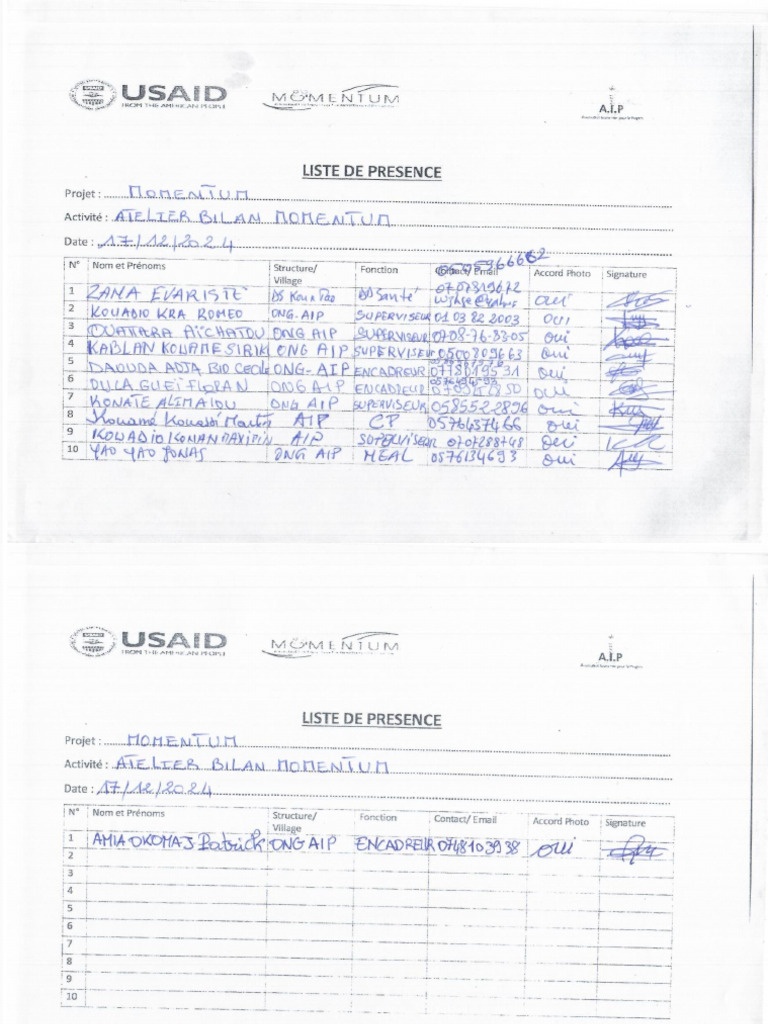 USAID
FROM THE AMERICAN PEOPLE
MOMENTUM
A.I.P
LISTE DE PRESENCE
Projet : MOMENTUM
Activité : ATELIER BILAN MOMENTUM
Date : 17/12/2024
N° Nom et Prénoms Structure/ Village Fonction Contact/ Email Accord Photo Signature
1 ZANA EVARISTE DS DD Santé 0707819672 oui
2 KOUADIO KRA ROMEO ONG-AIP SUPERVISEUR 01 03 82 2003 oui
3 OUATTARA AÏCHATOU ONG AIP SUPERVISEUR 0708-76-33-05 oui
4 KABLAN KOUAME SIRIK ONG AIP SUPERVISEUR 0500809663 oui
5 DAOUDA ADJA BIO CECILE ONG-AIP ENCADREUR 0778019531 oui
6 OULA GUEÏ FLORAN ONG AIP ENCADREUR oui
7 KONATE ALIMATOU ONG AIP SUPERVISEUR 058552-2896 oui
8 Kouamé Kouassi Martin AIP CP 0576437466 oui
9 KOUADIO KONAN AIP SUPERVISEUR oui
10 YAO YAO JONAS ONG AIP MEAL 0576134693 oui
USAID
FROM THE AMERICAN PEOPLE
MOMENTUM
A.I.P
LISTE DE PRESENCE
Projet : MOMENTUM
Activité : ATELIER BILAN MOMENTUM
Date : 17/12/2024
N° Nom et Prénoms Structure/ Village Fonction Contact/ Email Accord Photo Signature
1 Patrick ONG AIP ENCADREUR 0748103938 oui
2
3
4
5
6
7
8
9
10